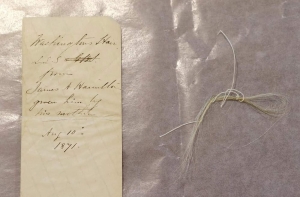 Washington's Hair
from
James A Hamilton
given him by
his mother
Aug 10
1871.